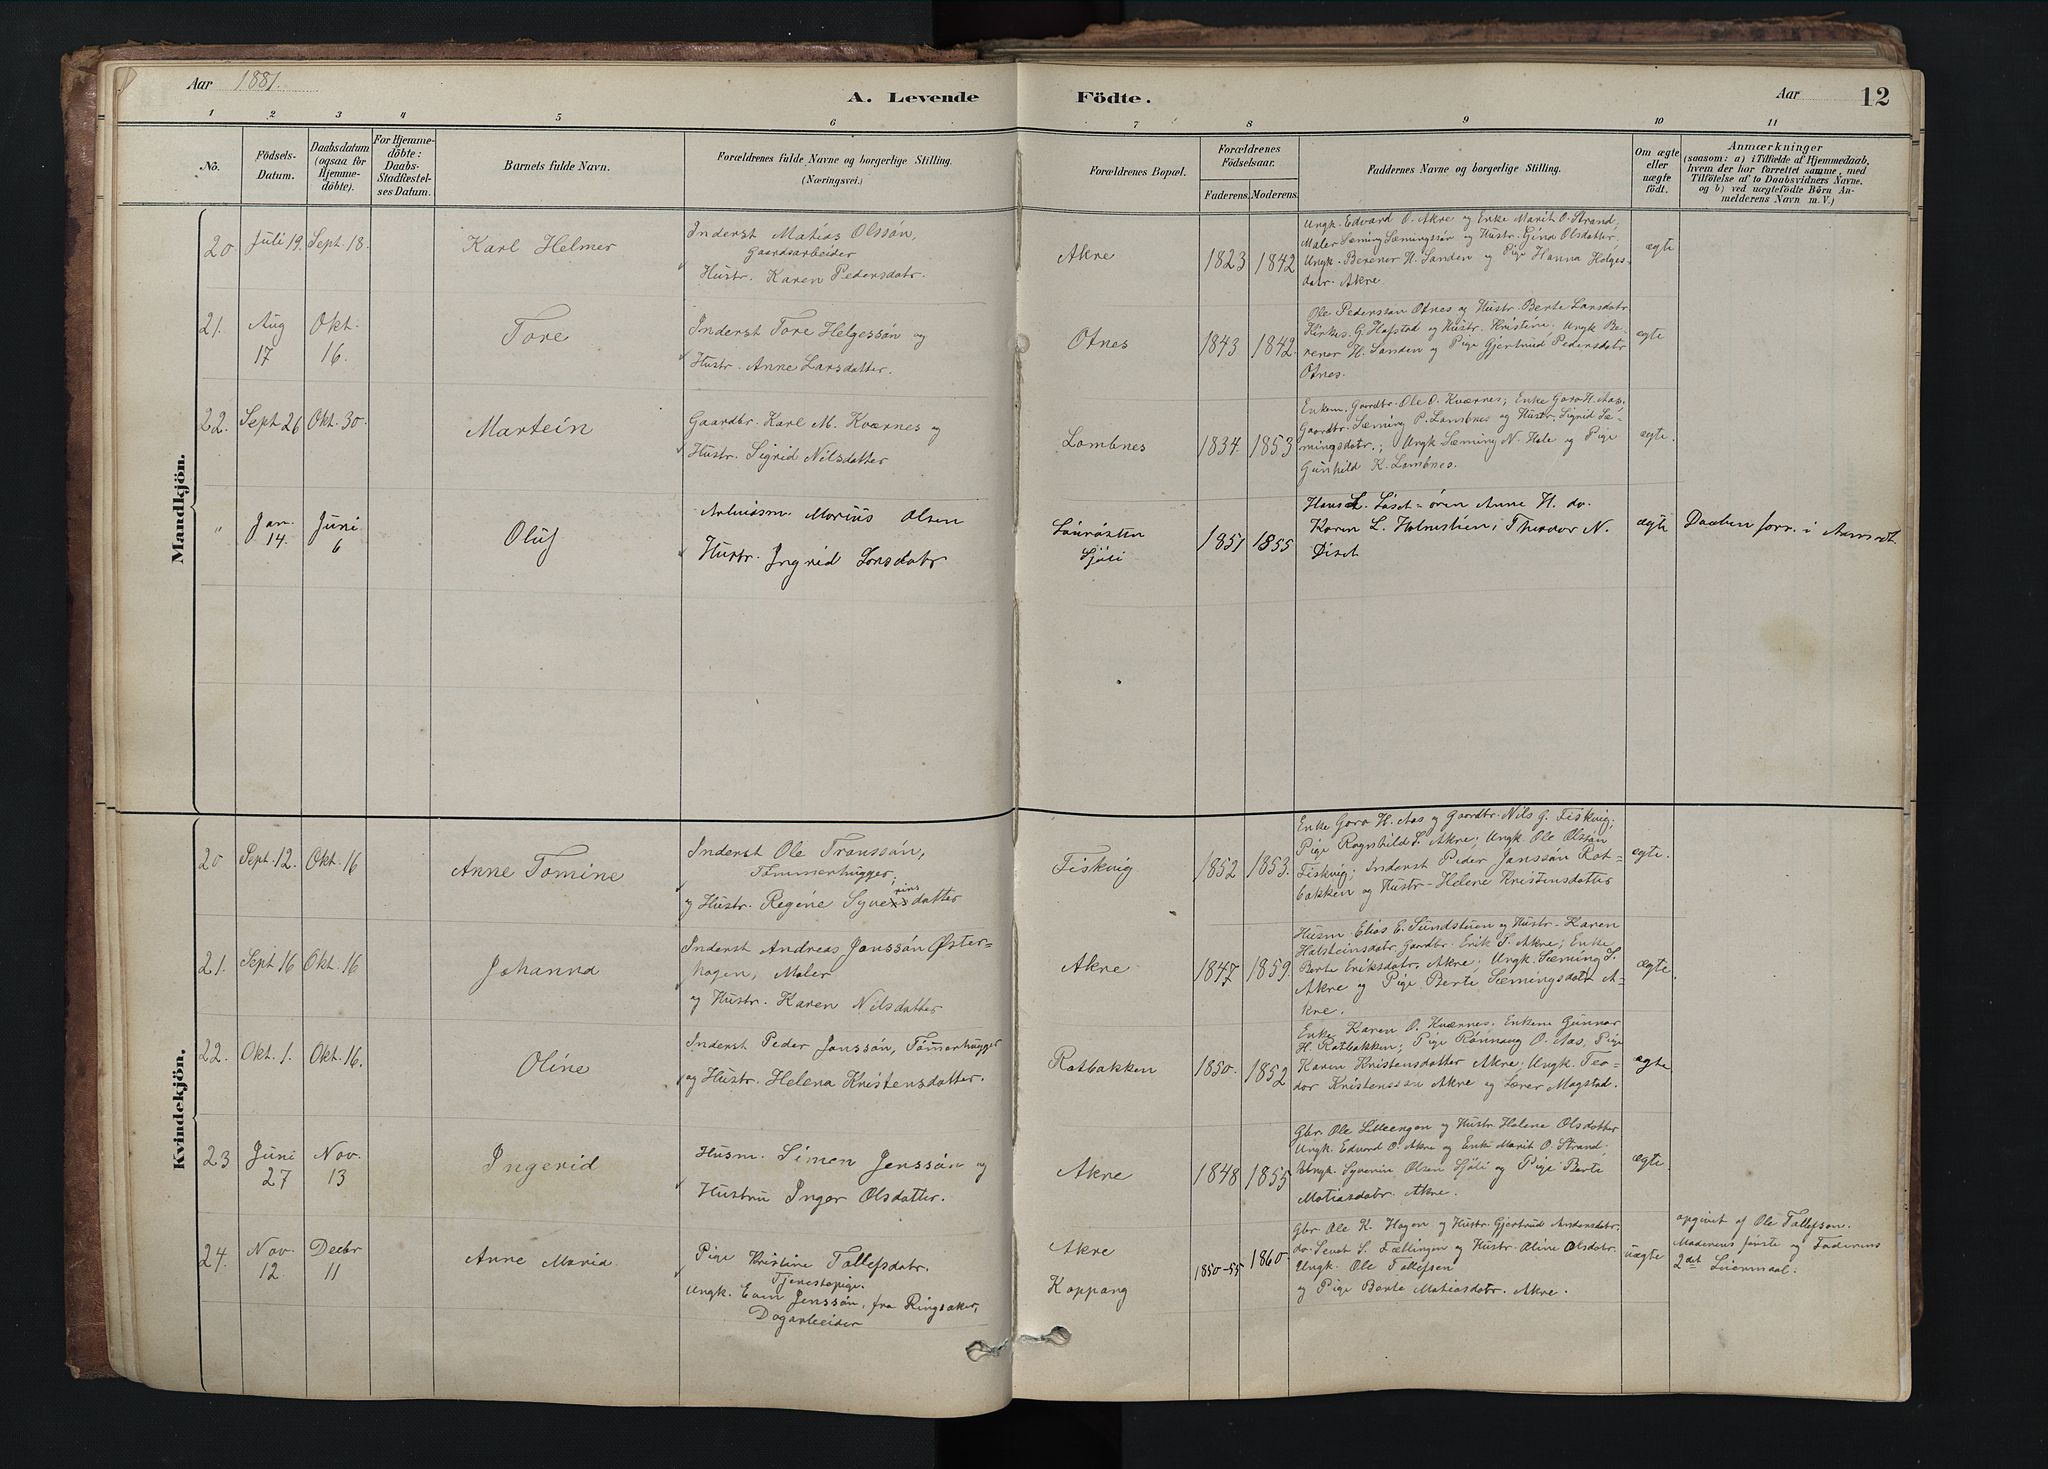 Aar 1881.
A. Levende Födte.
Aar 12
1 2 3 4 5 6 7 8 9 10 11
No.
Födsels-
Datum.
Daabsdatum
(ogsaa for
Hjemme-
döbte).
For Hjemme-
döbte:
Daabs-
Stadfæstel-
ses Datum.
Barnets fulde Navn.
Forældrenes fulde Navne og borgerlige Stilling.
(Næringsvei.)
Forældrenes Bopæl.
Forældrenes
Födselsaar.
Faderens. Moderens.
Faddernes Navne og borgerlige Stilling.
Om ægte
eller
uægte
födt.
Anmærkninger
(saasom: a) i Tilfælde af Hjemmedaab,
hvem der har forrettet samme, med
Tilföielse af to Daabsvidners Navne,
og b) ved uægtefödte Börn An-
melderens Navn m. V.)
Mandkjön.
20. Juli 19. Sept. 18.
Karl Helmer
Inderst Matias Olssön,
Gaardsarbeider
Hustr. Karen Pedersdatr.
Akre
1823 1842
Ungk. Edvard O. Akre og Enke Marit O. Strand,
Maler Sæming Sæmingssön og Hustr. Gina Olsdatter,
Ungk. Berener H. Sanden og Pige Hanna Helges-
datr. Akre
ægte
21. Aug 17 Okt. 16.
Tore
Inderst Tore Helgessön og
Hustr. Anne Larsdatter.
Otnes
1843 1842.
Ole Pederssan Otnes og Hustr. Berte Larsdatr
Kirkes. G. Hafstad og Hustr. Kristine; Ungk Be-
rener H. Sanden og Pige Gjertrud Pedersdatr
Otnes.
ægte
22. Sept 26 Okt. 30.
Martein
Gaardbr. Karl M. Kværnes og
Hustr. Sigrid Nilsdatter
Lombnes
1834. 1853
Enkem. Gaardbr. Ole O. Kværnes; Enke Goro H. Aas.
Gaardbr. Sæming P. Lombnes og Hustr. Sigrid Sæ-
mingsdatr.; Ungk Sæming N. Hole og Pige
Gunhild K. Lombnes.
ægte.
" Jan. 14. Juni 6
Oluf
Arbeidsm. Marius Olsen
Hustr. Ingrid Larsdatr
Sjöli
1851 1855
Hans L. Anne H. do.
Karen L. Holmstien; Theodor N.
Diset
ægte
Daaben forr. i Aamodt.
Kvindekjön.
20 Sept. 12. Okt. 16
Anne Tomine
Inderst Ole Transsön,
Tömmerhugger,
rins
og Hustr. Regine Syversdatter
Fiskvig
1852 1853.
Enke Goro H. Aas og Gaardbr. Nils G. Fiskvig;
Pige Ragnhild S. Akre; Ungk Ole Olssön
Fiskvig; Inderst Peder Janssön Rat-
bakken og Hustr- Helene Kristensdatter
ægte.
21. Sept 16 Okt. 16
Johanna
Inderst Andreas Janssön Öster-
hagen, Maler
og Hustr. Karen Nilsdatter
Akre
1847 1859.
Husm. Elias E. Sundsteien og Hustr. Karen
Halsteinsdatr, Gardbr. Erik S. Akre; Enke
Berte Eriksdatr. Akre; Ungk. Sæming S.
Akre og Pige Berte Sæmingsdatr A-
kre.
ægte.
22. Okt. 1. Okt. 16.
Oline
Inderst Peder Janssön, Tömerhugger
og Hustr. Helena Kristensdatter.
Ratbakken
1850. 1852
Enke Karen O. Kværnes, Enkem Gunnar
H. Ratbakken; Pige Rönnaug O. Aas, Pige
Karen Kristensdatter Akre; Ungk. Teo-
dor Kristenssan Akre og Lærer Magstad.
ægte
23 Juni 27 Nov. 13
Ingerid
Husm. Simen Jenssön og
Hustru Inger Olsdatter.
Akre
1848 1855
Gbr Ole Lilleengen og Hustr Helene Olsdatter
Ungk. Edvard O. Akre og Enke Marit O. Strand;
Ungk. Syverin Olsen Sjöli og Pige Berte
Matiasdatr. Akre.
ægte.
24. Nov. 12 Decbr 11
Anne Maria
Pige Kristine Tollefsdatr.
Tjenestepige.
Ungk. Even Jenssön, fra Ringsaker,
Dagarbeider
Akre
Koppang
1850-55 1860.
Gbr. Ole K. Hagen og Hustr. Gjertrud Andersdatr.
do. Sevat S. Fællingen og Hustr. Oline Olsdatr.
Ungk. Ole Tollefsen
og Pige Berte Matiasdatr. Akre.
uægte
opgivet af Ole Tollefson.
Moderens förste og Faderens
2det Leiermaal.